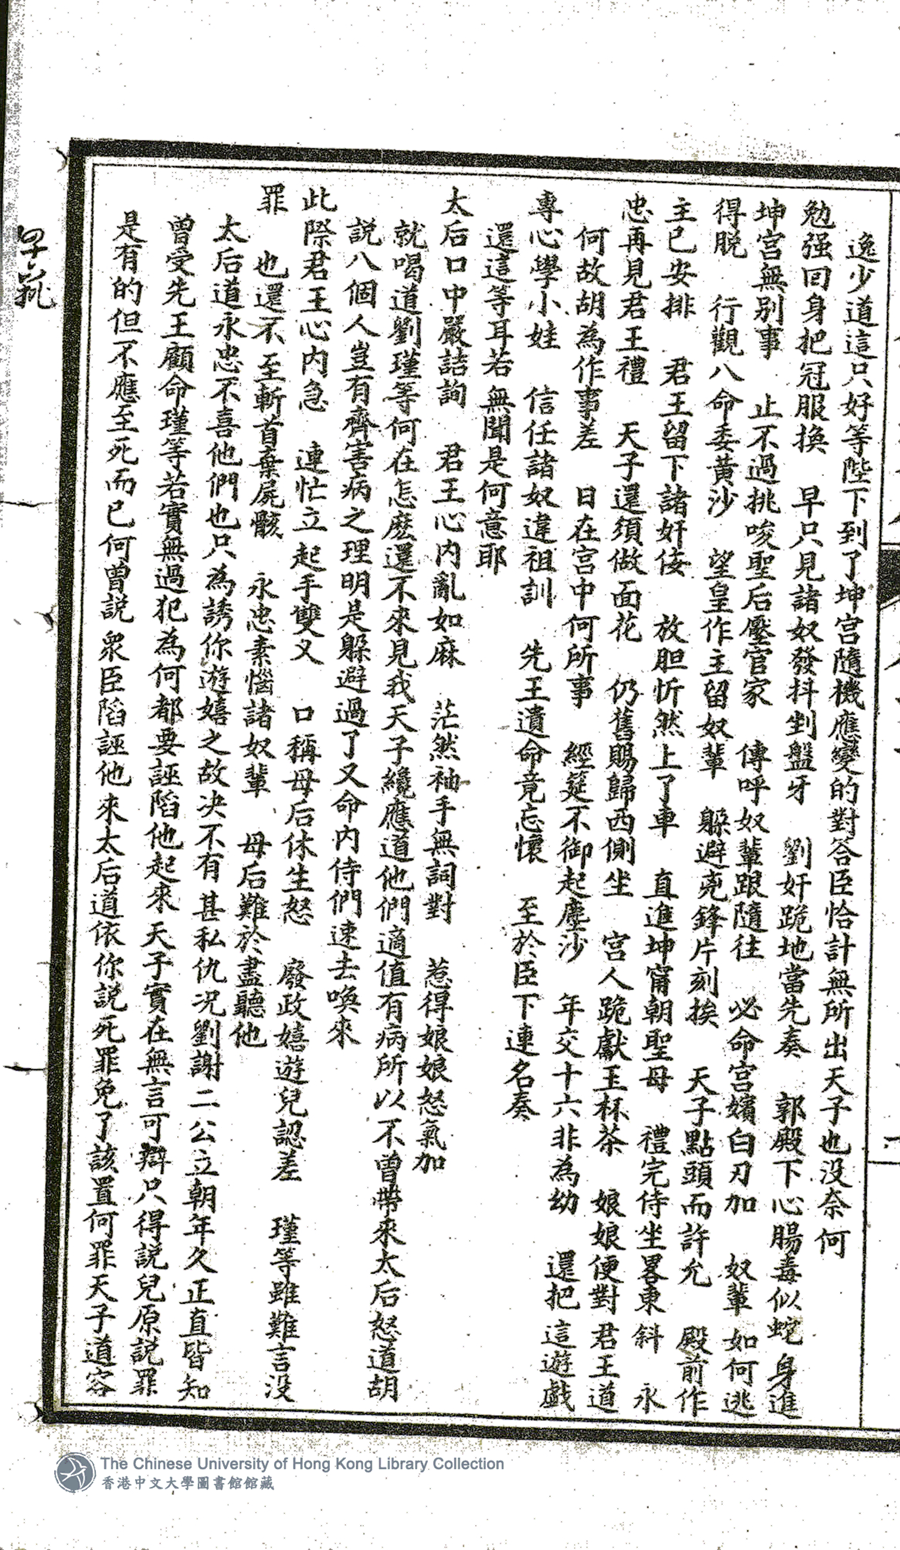 逸少道這只好等陛下到了坤宮隨機應變的對答臣恰計無所出天子也没奈何
勉强回身把冠服換　早只見諸奴發抖剉盤牙　劉奸跪地當先奏　郭殿下心腸毒似蛇　身進
坤宮無别事　止不過挑唆聖后壓官家　傳呼奴輩跟隨往　必命宮嬪白刃加　奴輩如何逃
得脱　行觀八命委黄沙　望皇作主留奴輩　躲避兇鋒片刻挨　天子點頭而許允　殿前作
主已安排　君王留下諸奸佞　放胆忻然上了車　直進坤甯朝聖母　禮完侍坐畧東斜　永
忠再見君王禮　天子還須做面花　仍舊賜歸西側坐　宮人跪獻玉杯茶　娘娘便對君王道
何故胡為作事差　日在宮中何所事　經筵不御起塵沙　年交十六非為幼　還把這遊戯
專心學小娃　信任諸奴違祖訓　先王遺命竟忘懷　至於臣下連名奏
還這等耳若無聞是何意耶
太后口中嚴詰詢　君王心内亂如麻　茫然袖手無詞對　惹得娘娘怒氣加
就喝道劉瑾等何在怎麽還不來見我天子纔應道他們適值有病所以不曾帶來太后怒道胡
説八個人豈有齊害病之理明是躲避過了又命内侍們速去喚來
此際君王心内急　連忙立起手雙叉　口稱母后休生怒　廢政嬉遊兒認差　瑾等雖難言没
罪　也還不至斬首棄屍骸　永忠素惱諸奴輩　母后難於盡聽他
太后道永忠不喜他們也只為誘你遊嬉之故决不有甚私仇况劉謝二公立朝年久正直皆知
曾受先王顧命瑾等若實無過犯為何都要誣陷他起來天子實在無言可辯只得説兒原説罪
是有的但不應至死而已何曾説衆臣陷誣他來太后道依你説死罪免了該置何罪天子道容
The Chinese University of Hong Kong Library Collection
香港中文大學圖書館館藏